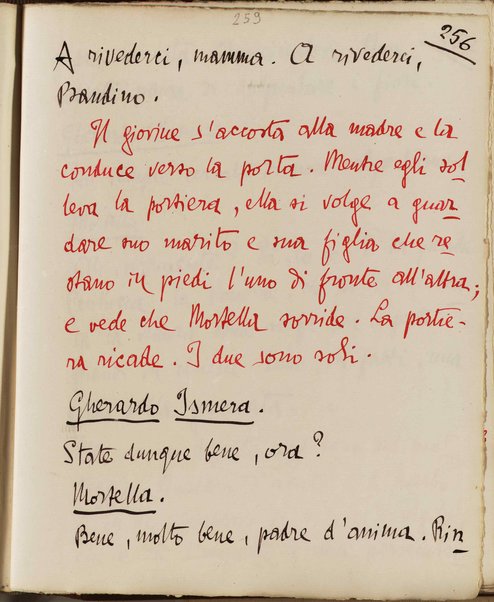 259
256
A rivederci, mamma. A rivederci,
Bandino.
Il giovine s'accosta alla madre e la
conduce verso la porta. Mentre egli sol
leva la portiera, ella si volge a guar
dare suo marito e sua figlia che re
stano in piedi l'uno di fronte all'altra;
e vede che Mortella sorride. La portie-
ra ricade. I due sono soli.
Gherardo Ismera.
State dunque bene, ora?
Mortella.
Bene, molto bene, padre d'anima. Rin